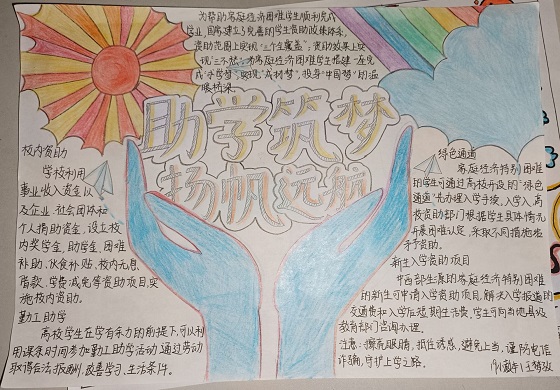 为帮助家庭经济困难学生顺利完成
学业,国家建立了完善的学生资助政策体系,
资助范围上实现“三个全覆盖”;资助效果上实
现“三不愁”,为家庭经济困难学生搭建一座完
成“求学梦”,实现“成材梦”,投身“中国梦”的温
暖桥梁。
助学筑梦
扬帆远航
校内资助
学校利用
事业收入资金以
及企业、社会团体和
个人捐助资金,设立校
内奖学金、助学金、困难
补助、伙食补贴、校内无息
借款、学费减免等资助项目,实
施校内资助。
勤工助学
高校学生在学有余力的前提下,可以利
用课余时间参加勤工助学活动,通过劳动
取得合法报酬,改善学习、生活条件。
绿色通道
家庭经济特别困难
的学生可通过高校开设的“绿色
通道”先办理入学手续,入学后,高
校资助部门根据学生具体情况
开展困难认定,采取不同措施给
予资助。
新生入学资助项目
中西部生源的家庭经济特别困难
的新生可申请入学资助项目,解决入学报道的
交通费和入学后短期生活费,学生可向当地县级
教育部门咨询办理。
注意:擦亮眼睛,抵住诱惑,避免上当,谨防电信
诈骗,守护上学之路。